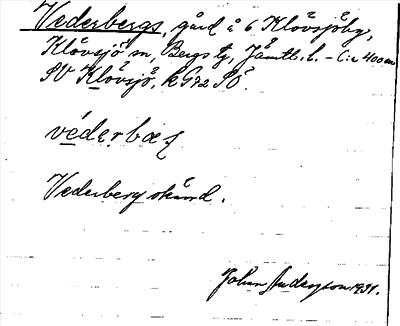 Vederbergs, gård å 6 Klövsjöby,
Klövsjö sn, Bergs tg, Jämtl. l. – C:a 400 m
SV Klövsjö, k 972 SÖ.
Vederberg skämd.
Johan Anderson 1931.